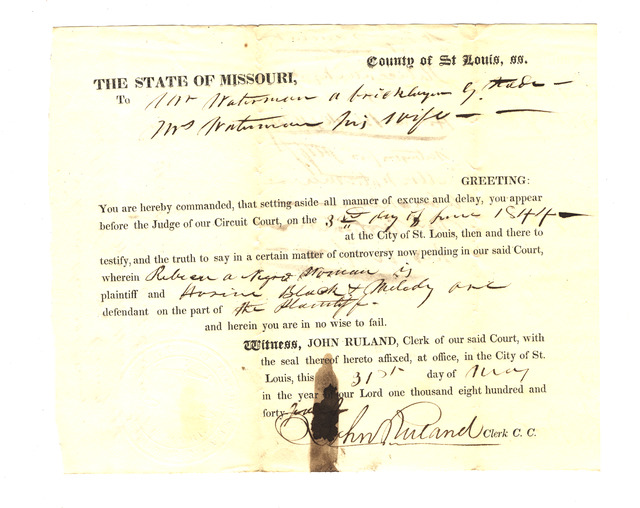 County of St Louis, ss.
THE STATE OF MISSOURI,
To Mr Waterman a bricklayer by trade
Mrs Waterman his wife
GREETING:
You are hereby commanded, that setting aside all manner of excuse and delay, you appear
before the Judge of our Circuit Court, on the 3rd day of June 1844
at the City of St. Louis, then and there to
testify, and the truth to say in a certain matter of controversy now pending in our said Court,
wherein Rebecca a Negro Woman is
plaintiff and Black & Melody are
defendant on the part of the Plaintiff.
and herein you are in no wise to fail.
Witness, JOHN RULAND, Clerk of our said Court, with
the seal thereof hereto affixed, at office, in the City of St.
Louis, this 31st day of May
in the year of our Lord one thousand eight hundred and
forty four
John Ruland Clerk C. C.